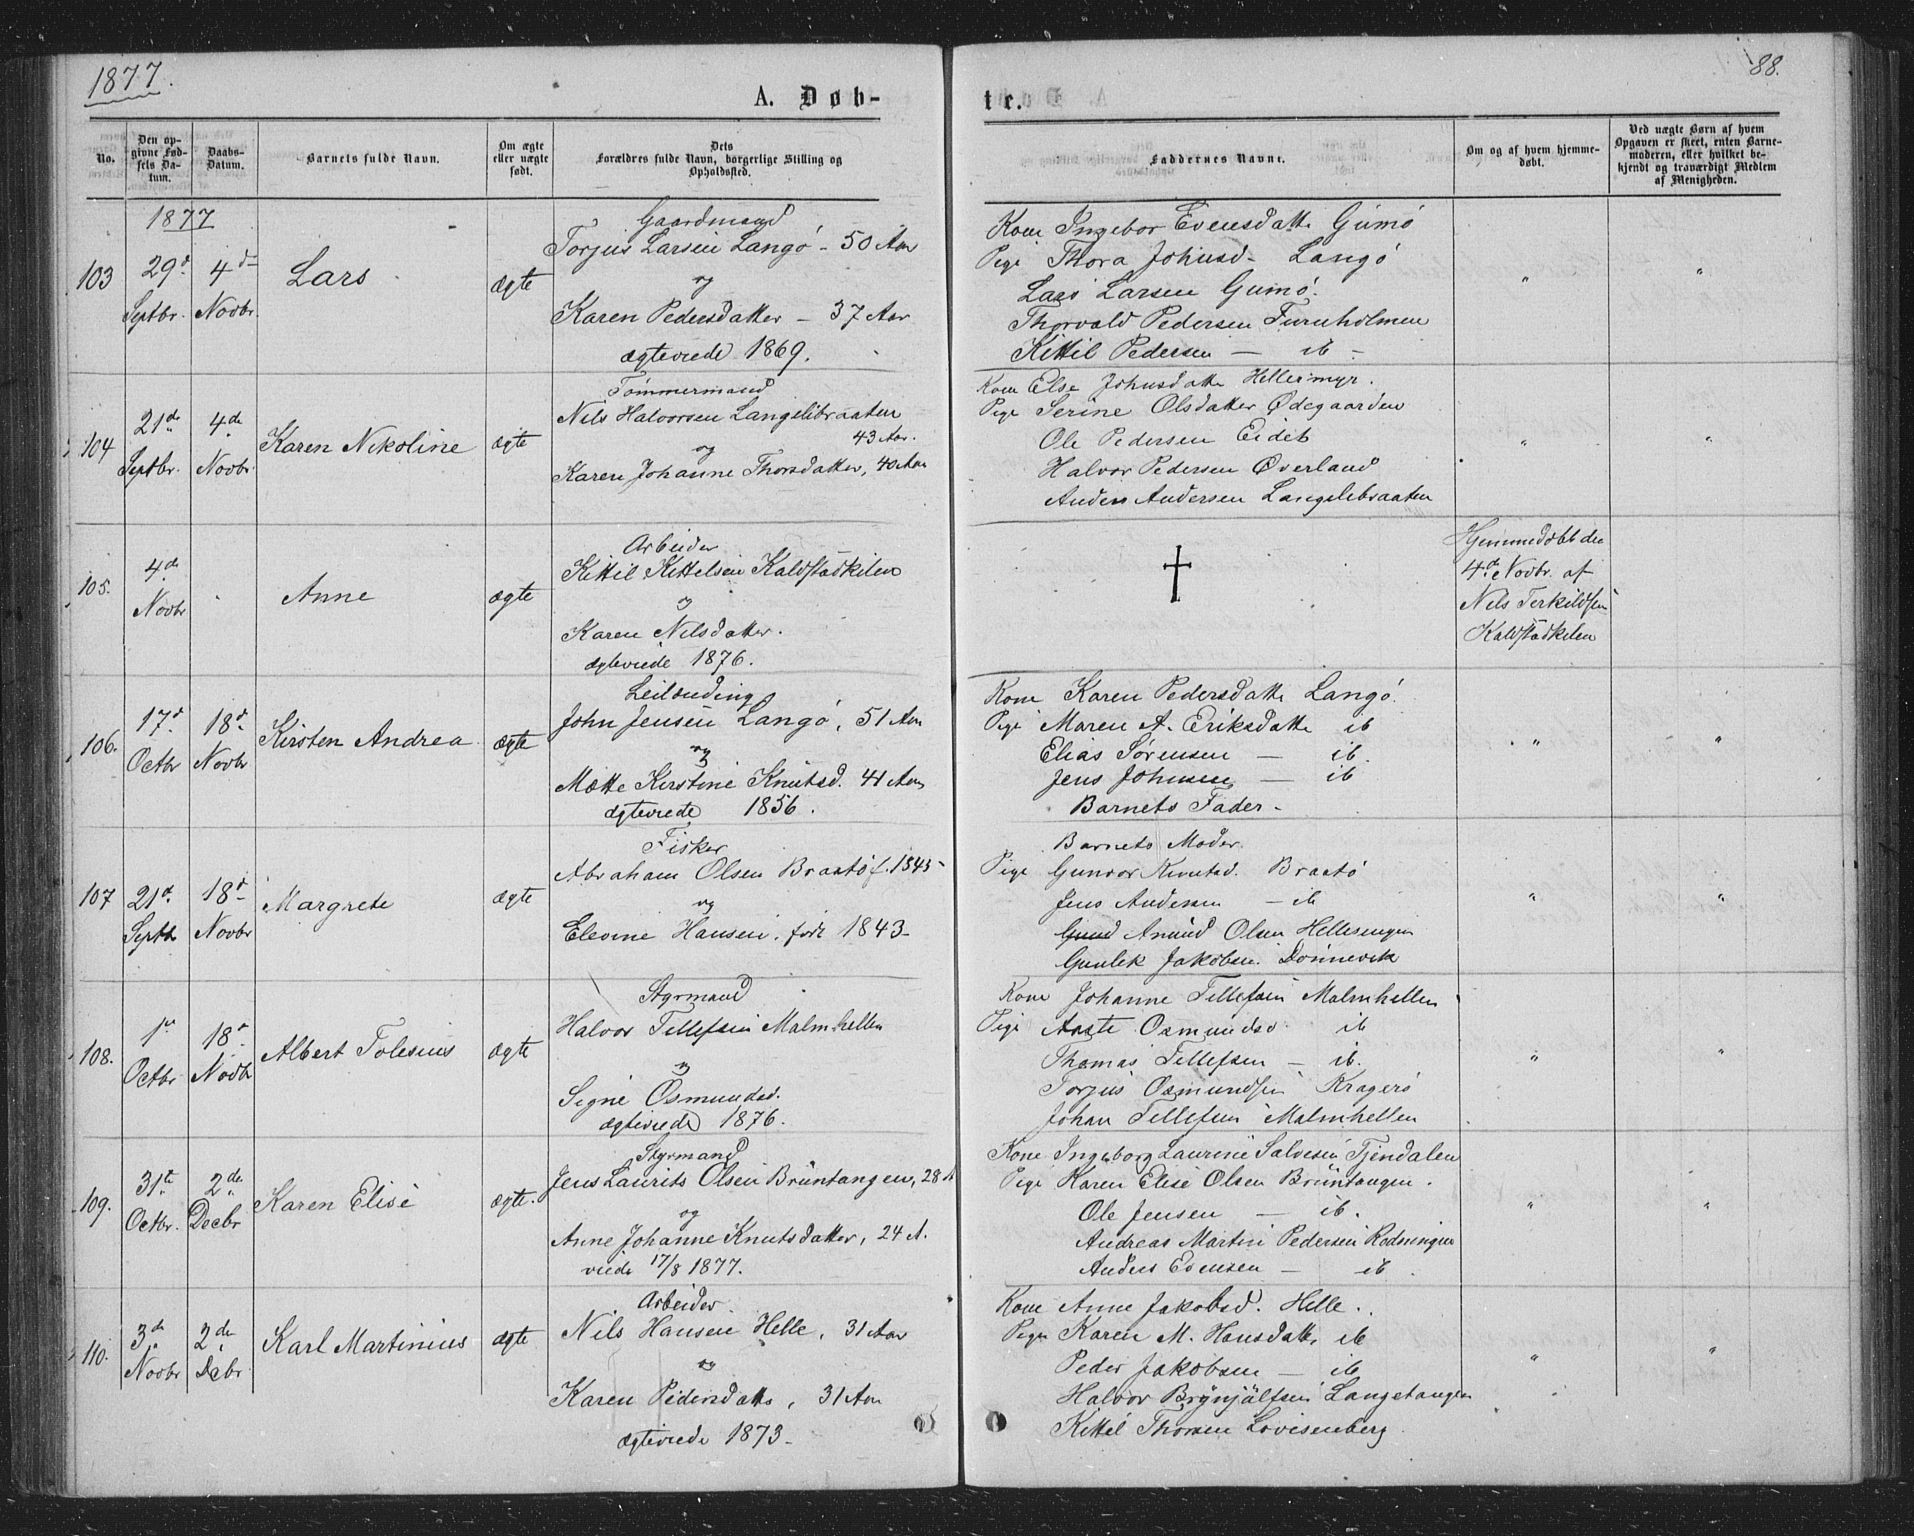 1877.
88.
A. Døb-
te.
No.
Den op-
givne Fød-
sels Da-
tum.
Daabs-
Datum.
Barnets fulde Navn.
Om ægte
eller uægte
født.
Dets
Forældres fulde Navn, borgerlige Stilling og
Opholdssted.
Faddernes Navne.
Om og af hvem hjemme-
døbt.
Ved uægte Børn af hvem
Opgaven er skeet, enten Barne-
moderen, eller hvilket be-
kjendt og troværdigt Medlem
af Menigheden.
1877
103
29d
Septbr.
4de
Novbr.
Lars
ægte
Gaardmand
Torjus Larsen Langø - 50 Aar
og
Karen Pedersdatter - 37 Aar
ægteviede 1869.
Kone Ingebor Evensdatt Gumø
Pige Thora Johnsd- Langø
Lars Larsen Gumø.
Thorvald Pedersen Furuholmen
Kittil Pedersen - ib -
"
"
104
21de
Septbr.
4de
Novbr.
Karen Nikoline
ægte
Tømmermand
Nils Halvorsen Langelibraaten
43 Aar.
og
Karen Johanne Thorsdatter, 40 Aar
Kone Else Johnsdatte Hellermyr.
Pige Serine Olsdatter Ødegaarden
Ole Pedersen Eidet
Halvor Pedersen Øverland
Anders Andersen Langelibraaten
"
"
105.
4de
Novbr
Anne
ægte
Arbeider
Kittil Kittelsen Kaldstadkilen
og
Karen Nilsdatter.
ægteviede 1876.
†
Hjemmedøbt den
4de Novbr. af
Nils Terkildsen
Kaldstadkilen
106.
17d
Octbr
18d
Novbr
Kirsten Andrea
ægte
Leilænding
John Jensen Langø, 51 Aar
og
Mætte Kirstine Knutsd. 41 Aar
ægteviede 1856.
Kone Karen Pedersdatte Langø.
Pige Maren A. Eriksdatte ib
Elias Sørensen - ib.
Jens Johnsen - ib
Barnets Fader -
"
"
107
21d.
Septbr
18d
Novbr
Margrete
ægte
Fisker
Abraham Olsen Braatø f. 1845
og
Elevine Hansen, født 1843-
Barnets Moder
Pige Gunvor Knutsd. Braatø
Jens Andersen - ib
Anund Olsen Hellesengen
Gunlek Jakobsen Dønnevik
"
"
108.
1ste
Octbr
18d
Novbr
Albert Tolesius
ægte
Styrmand
Halvor Tellefsen Malmhellen
og
Signe Osmundsd.
ægteviede 1876.
Kone Johanne Tellefsen Malmhellen
Pige Aaste Osmundsd. ib
Thomas Tellefsen - ib.
Torjus Osmundsen Kragerø
Johan Tellefsen Malmhellen
"
"
109.
31te
Octbr.
2de
Decbr
Karen Elise
ægte.
Styrmand
Jens Laurits Olsen Bruntangen, 28 A
og
Anne Johanne Knutsdatter, 24 A.
viede 17/8 1877.
Kone Ingeborg Laurine Salvesen Tjendalen
Pige Karen Elise Olsen Bruntangen.
Ole Jensen - ib.
Andreas Martin Pedersen Rødningen
Anders Evensen - ib
"
"
110.
3de
Novbr
2de
Debr
Karl Martinius
ægte
Arbeider
Nils Hansen Helle, 31 Aar
og
Karen Pedersdatte, 31 Aar
ægteviede 1873-
Kone Anne Jakobsd. Helle.
Pige Karen M. Hansdatte ib
Peder Jakobsen - ib
Halvor Brynjulfsen Langetangen
Kittil Thorsen Lovisenberg
"
"